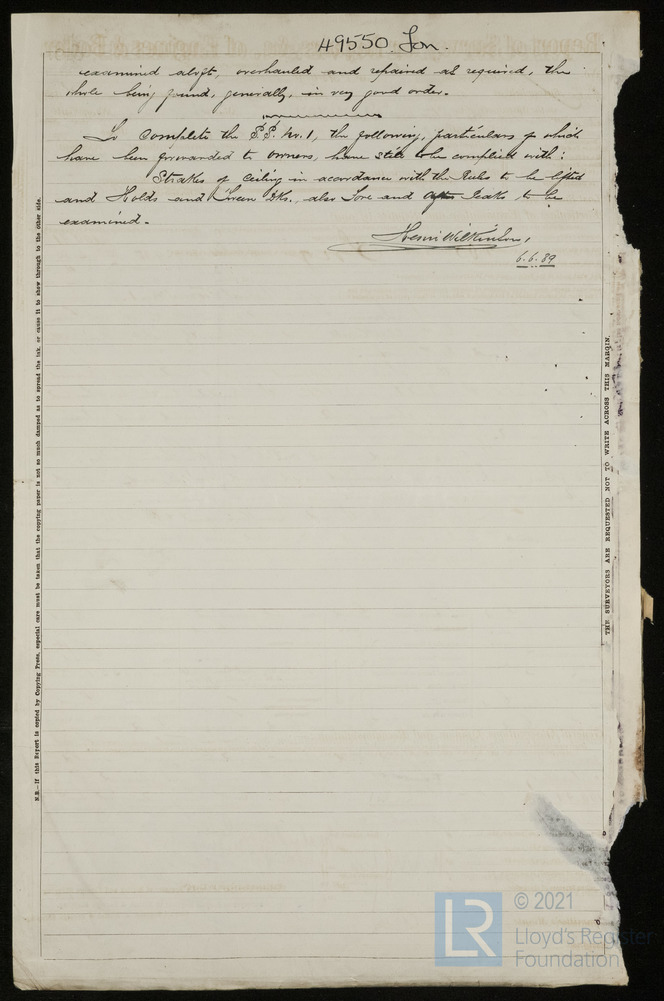 49550 Lon.
examined aloft, overhauled and repaired as required, the
whole being found, generally, in very good order.
To Complete the S.S. No. 1, the following, particulars of which
have been forwarded to owners, have still to be complied with:
Strakes of Ceiling in accordance with the Rules to be lifted
and Holds and Tween Dks., also Fore and After Peaks to be
examined.
Henri Wilkinson,
6.6.89
N.B.—If this Report is copied by Copying Press, especial care must be taken that the copying paper is not so much damped as to spread the ink, or cause it to show through to the other side.
THE SURVEYORS ARE REQUESTED NOT TO WRITE ACROSS THIS MARGIN.
LR
© 2021
Lloyd's Register
Foundation